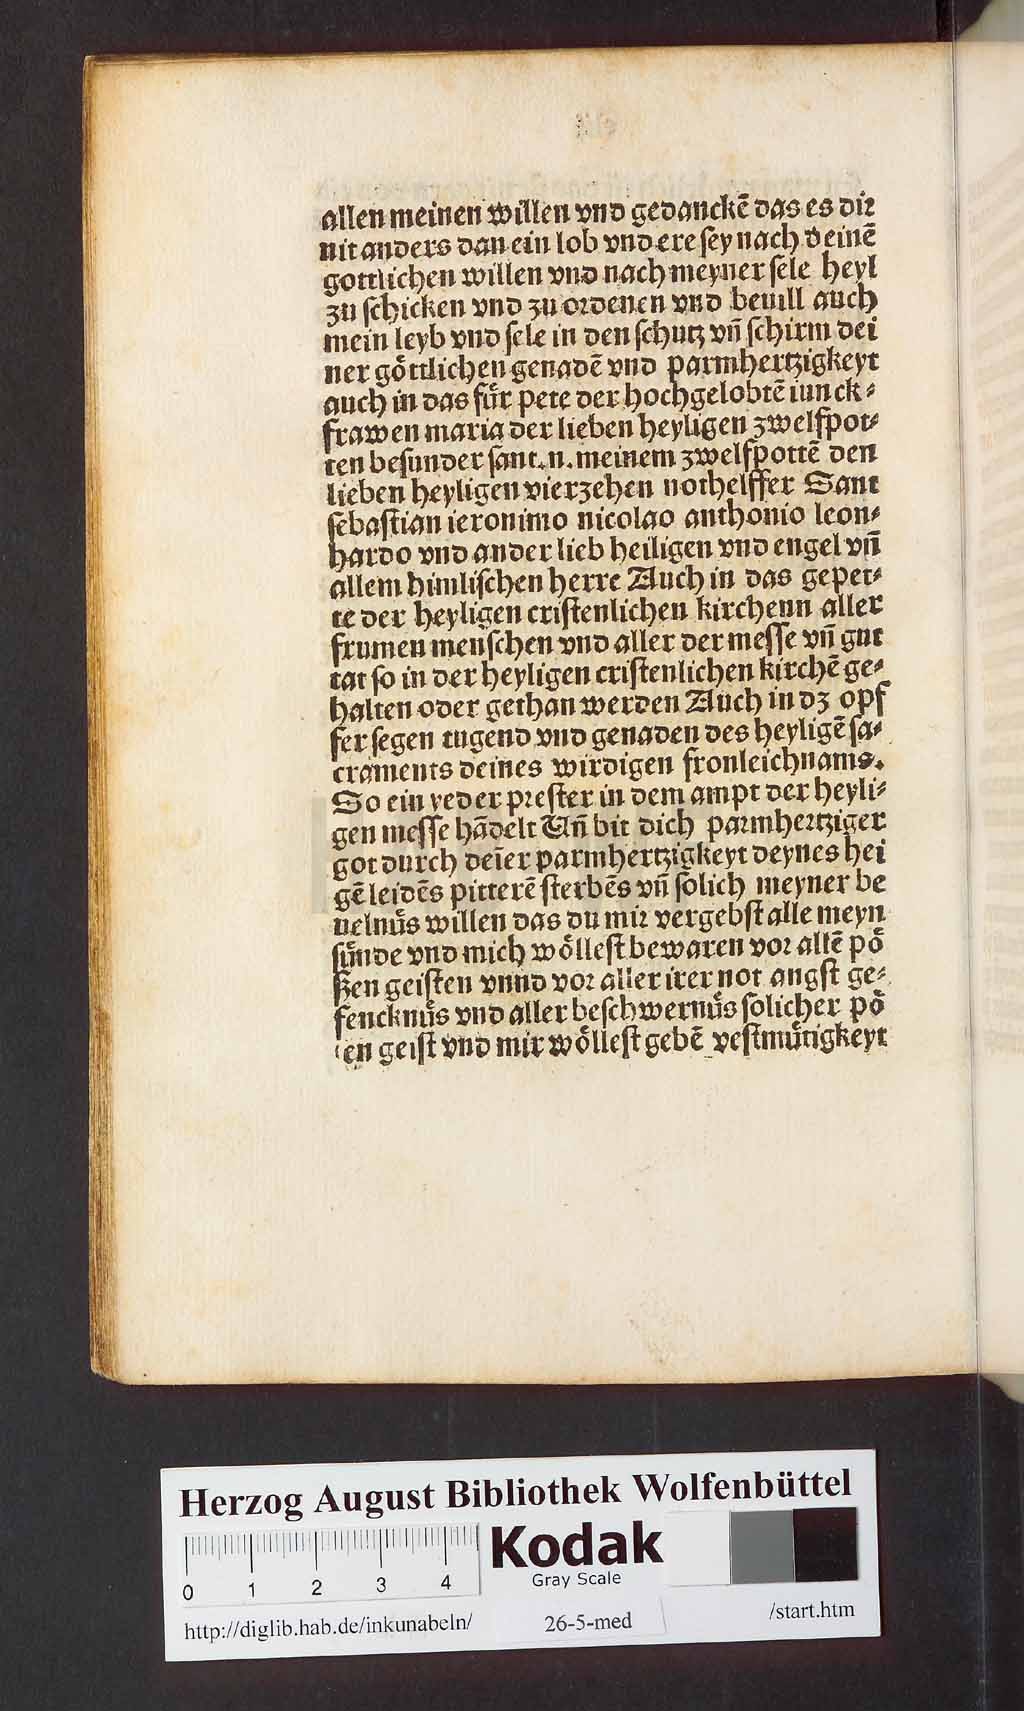 allen meinen willen vnd gedanckē das es dir
nit anders dan ein lob vnd ere ſey nach deinē
gottlichen willen vnd nach meyner ſele heyl
zu ſchicken vnd zu ordenen vnd beuill auch
mein leyb vnd ſele in den ſchutz vn̄ ſchirm dei
ner göttlichen genadē vnd parmhertzigkeyt
auch in das für pete der hochgelobtē iunck⸗
frawen maria der lieben heyligen zwelfpot⸗
ten beſunder ſant.n. meinem zwelfpottē den
lieben heyligen vierzehen nothelffer Sant
ſebaſtian ieronimo nicolao anthonio leon⸗
hardo vnd ander lieb heiligen vnd engel vn̄
allem himliſchen herre Auch in das gepet⸗
te der heyligen criſtenlichen kirchenn aller
frumen menſchen vnd aller der meſſe vn̄ gut
tat ſo in der heyligen criſtenlichen kirchē ge⸗
halten oder gethan werden Auch in dz opf
fer ſegen tugend vnd genaden des heyligē ſa⸗
craments deines wirdigen fronleichnams.
So ein yeder preſter in dem ampt der heyli⸗
gen meſſe hādelt Vn̄ bit dich parmhertziger
got durch deīer parmhertzigkeyt deynes hei
gē leidēs pitterē ſterbēs vn̄ ſolich meyner be
uelnüs willen das du mir vergebſt alle meyn
ſünde vnd mich wölleſt bewaren vor allē pö
ßen geiſten vnnd vor aller irer not angſt ge⸗
fencknüs vnd aller beſchwernüs ſolicher pö
en geiſt vnd mir wölleſt gebē veſtmütigkeyt
Herzog August Bibliothek Wolfenbüttel
Kodak
Gray Scale
0 1 2 3 4
http://diglib.hab.de/inkunabeln/ 26-5-med /start.htm